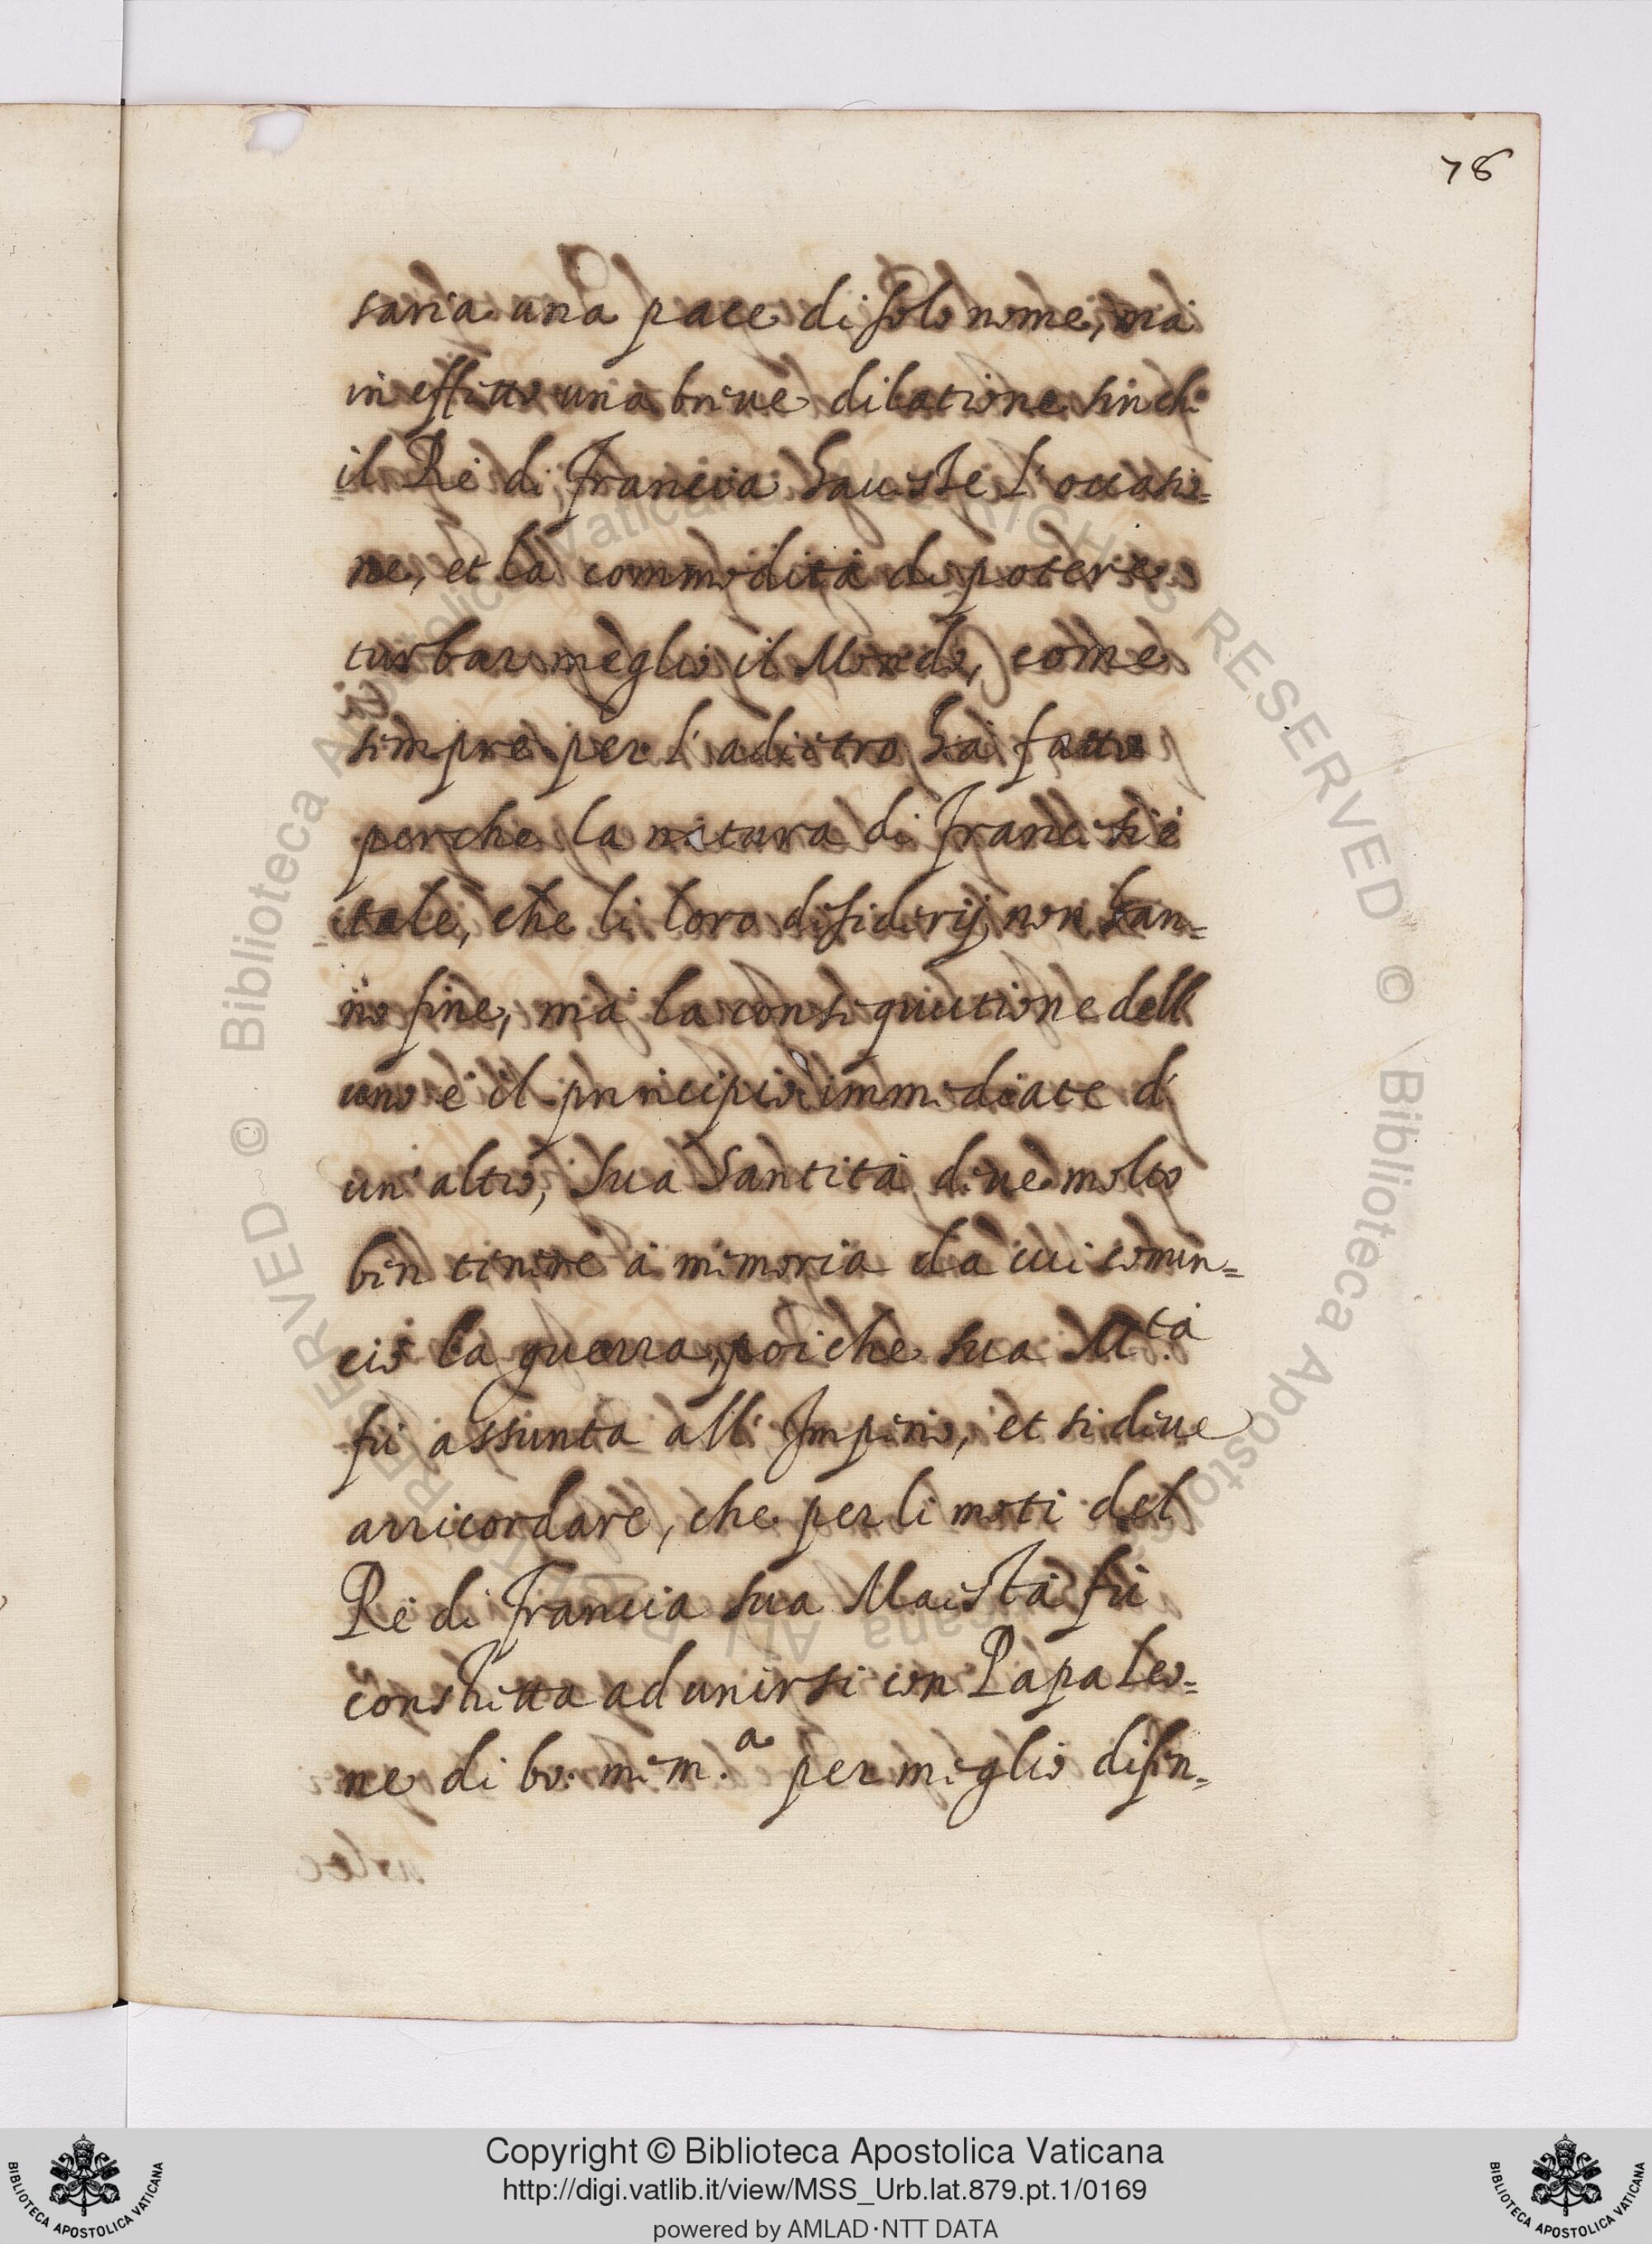 78
saria una pace di solo nome, mà
in effetto una breue dilatione sinche
il Rè di Francia hauesse l'occasio=
ne, et la commodità di potere
turbar meglio il Mondo, come
sempre per l'adietro hà fatto
perche la natura di Francesi è
tale, che li loro desiderij non han=
no fine, mà la conseguutione dell
uno è il principio immediate d'
un'altro, Sua Santità deue molto
ben tenere à memoria da cui comin=
ciò la guerra, poiche sua M.tà
fù assunta all'Imperio, et si deue
arricordare, che per li moti del
Rè di Francia sua Maestà fù
constretta ad unirsi con Papa Leo=
ne di bo. mem.a per meglio disen=
Copyright © Biblioteca Apostolica Vaticana
http://digi.vatlib.it/view/MSS_Urb.lat.879.pt.1/0169
powered by AMLAD·NTT DATA
BIBLIOTECA APOSTOLICA VATICANA
BIBLIOTECA APOSTOLICA VATICANA
© Biblioteca Apostolica Vaticana ALL RIGHTS RESERVED © Biblioteca Apostolica Vaticana ALL RIGHTS RESERVED